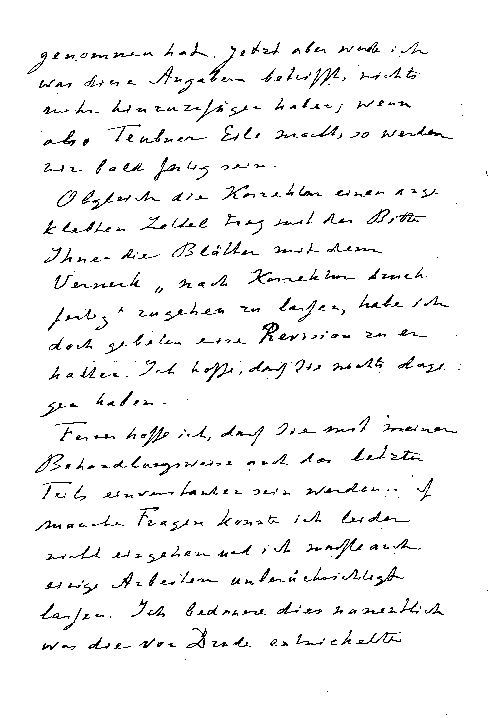 genommen hat. Jetzt aber werde ich
was diese Angaben betrifft, nichts
mehr hinzuzufügen haben, wenn
also Teubner Eile macht, so werden
wir bald fertig sein.
Obgleich die Korrektur einen ange
klebten Zettel trug mit der Bitte
Ihnen die Blätter mit dem
Vermerk „nach Korrektur druck
fertig" zugehen zu lassen, habe ich
doch gebeten eine Revision zu er
halten. Ich hoffe, daß Sie nichts dage
gen haben.
Ferner hoffe ich, daß Sie mit meiner
Behandlungsweise auch des letzten
Teils einverstanden sein werden.. Auf
manche Fragen konnte ich leider
nicht eingehen und ich mußte auch
einige Arbeiten unberücksichtigt
lassen. Ich bedaure dies namentlich
was die von Drude entwickelte